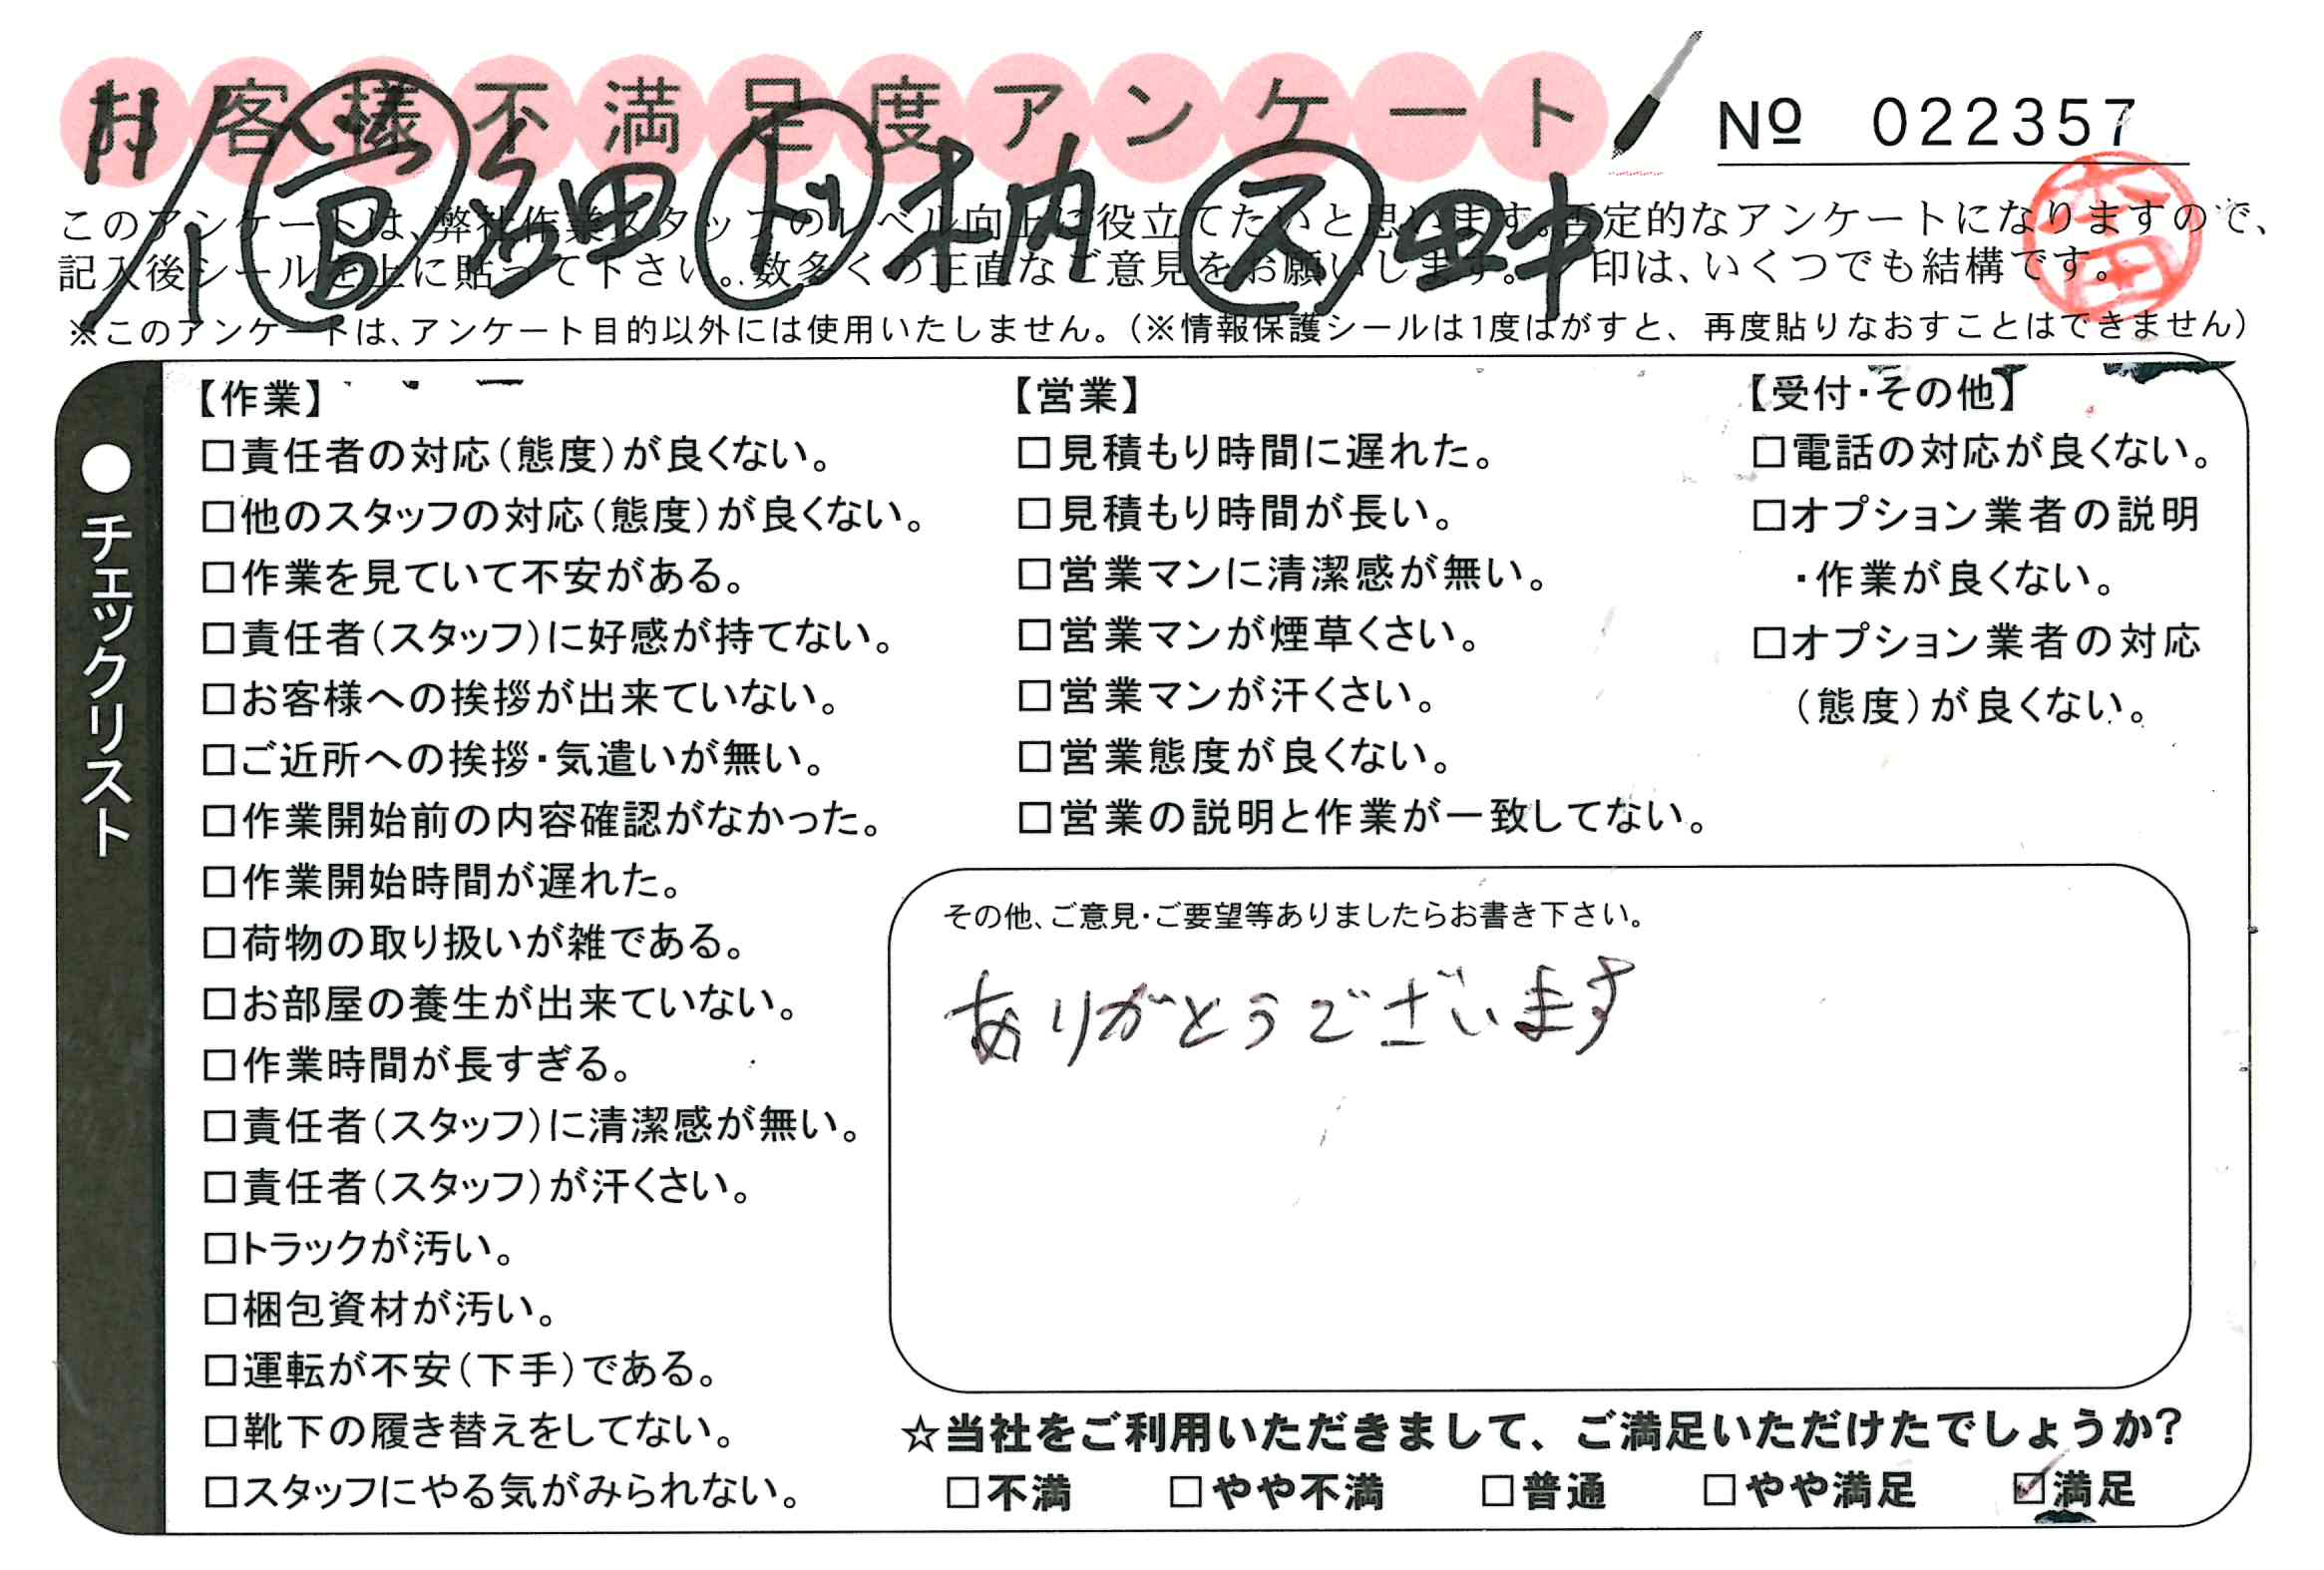 お客様不満足度アンケート
Nº 022357
11/1 営 沼田 ド 柄内 ス 田中
このアンケートは、弊社作業スタッフのレベル向上に役立てたいと思います。否定的なアンケートになりますので、
記入後シールを上に貼って下さい。数多くの正直なご意見をお願いします。✓印は、いくつでも結構です。
※このアンケートは、アンケート目的以外には使用いたしません。（※情報保護シールは1度はがすと、再度貼りなおすことはできません）
●チェックリスト
【作業】
□責任者の対応（態度）が良くない。
□他のスタッフの対応（態度）が良くない。
□作業を見ていて不安がある。
□責任者（スタッフ）に好感が持てない。
□お客様への挨拶が出来ていない。
□ご近所への挨拶・気遣いが無い。
□作業開始前の内容確認がなかった。
□作業開始時間が遅れた。
□荷物の取り扱いが雑である。
□お部屋の養生が出来ていない。
□作業時間が長すぎる。
□責任者（スタッフ）に清潔感が無い。
□責任者（スタッフ）が汗くさい。
□トラックが汚い。
□梱包資材が汚い。
□運転が不安（下手）である。
□靴下の履き替えをしてない。
□スタッフにやる気がみられない。
【営業】
□見積もり時間に遅れた。
□見積もり時間が長い。
□営業マンに清潔感が無い。
□営業マンが煙草くさい。
□営業マンが汗くさい。
□営業態度が良くない。
□営業の説明と作業が一致してない。
【受付・その他】
□電話の対応が良くない。
□オプション業者の説明
・作業が良くない。
□オプション業者の対応
（態度）が良くない。
その他、ご意見・ご要望等ありましたらお書き下さい。
ありがとうございます
☆当社をご利用いただきまして、ご満足いただけたでしょうか？
□不満 □やや不満 □普通 □やや満足 ☑満足